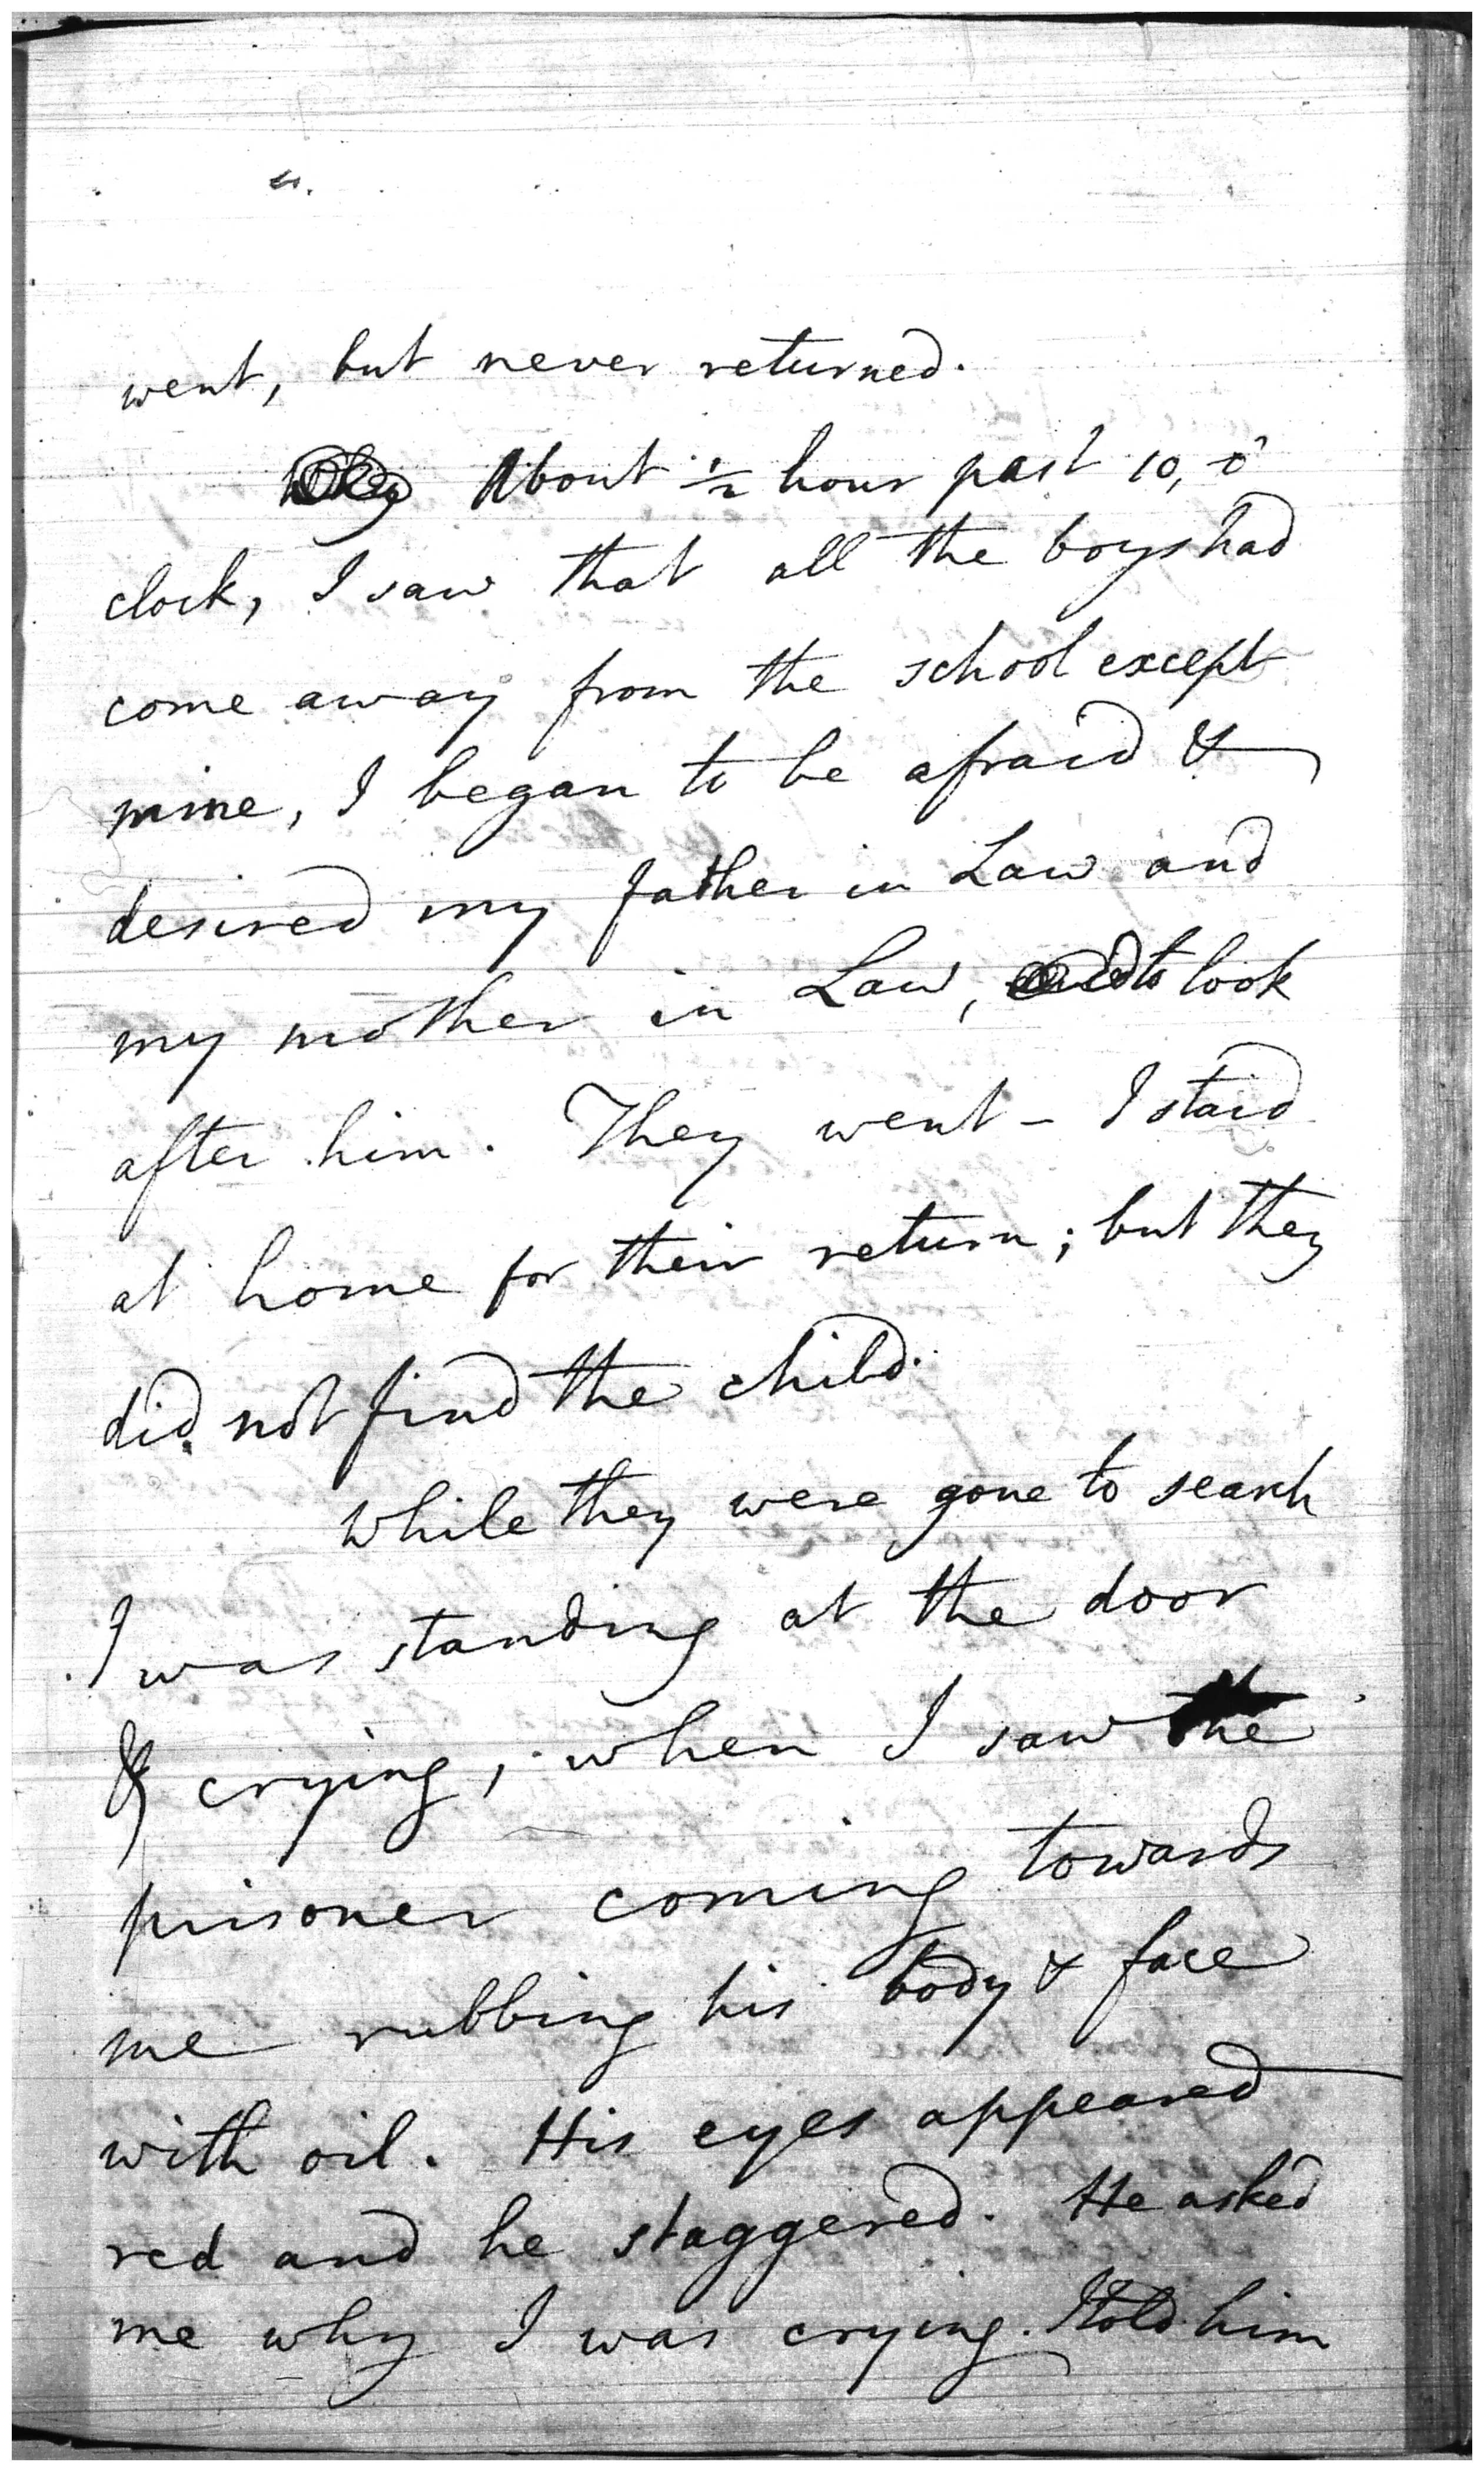 went, but never returned.
About ½ hour past 10, o'
clock, I saw that all the boys had
come away from the school except
mine, I began to be afraid &
desired my father in Law and
my mother in Law, to look
after him. They went - I staid
at home for their return; but they
did not find the child.
while they were gone to search
I was standing at the door
& crying, when I saw the
prisoner coming towards
me rubbing his body & face
with oil. His eyes appeared
red and he staggered. He asked
me why I was crying. I told him